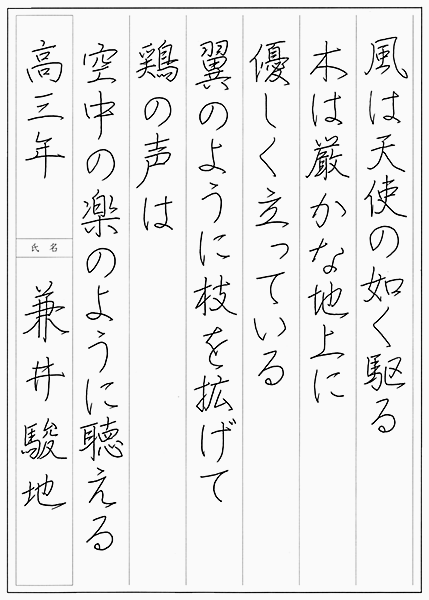 風は天使の如く駆る
木は厳かな地上に
優しく立っている
翼のように枝を拡げて
鶏の声は
空中の楽のように聴える
高三年
氏名
兼井駿地